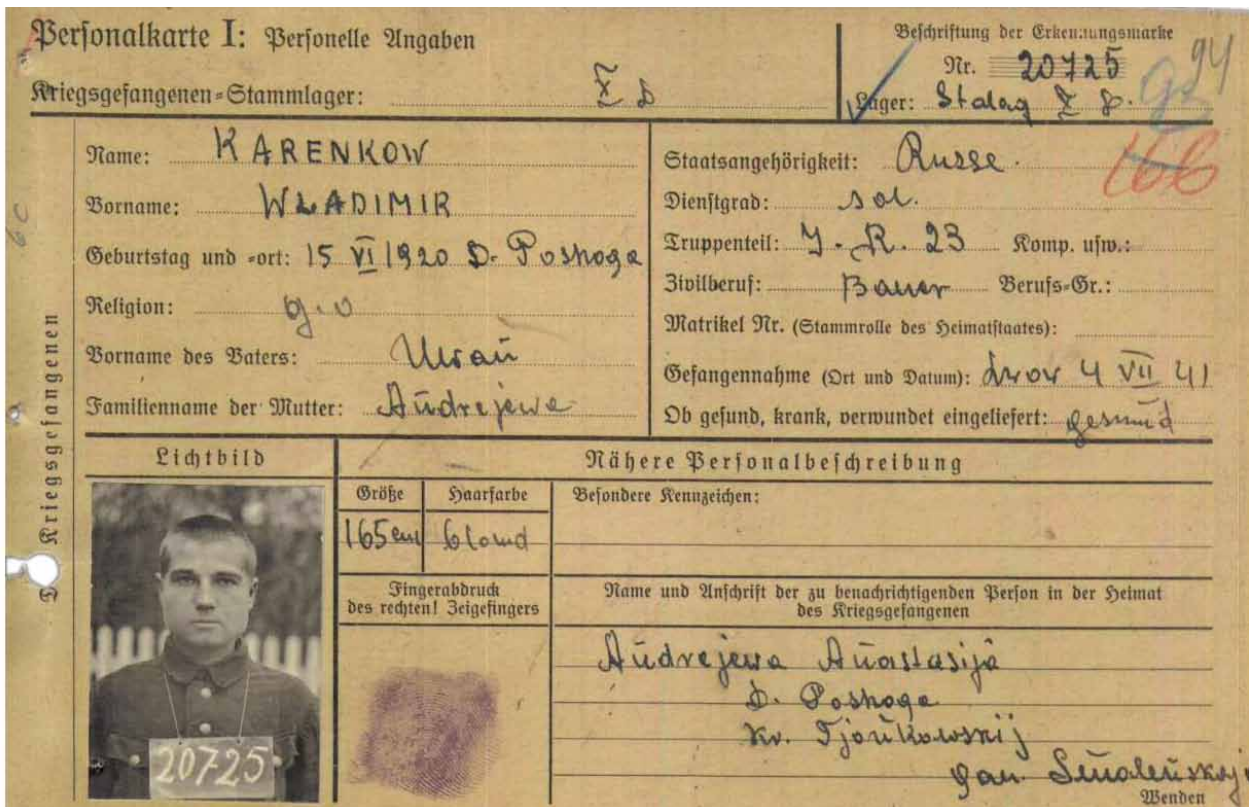 Personalkarte I: Personelle Angaben
Kriegsgefangenen=Stammlager: X D
Beschriftung der Erkennungsmarke
Nr. 20725
Lager: Stalag X D.
94
166
Des Kriegsgefangenen
Name: KARENKOW
Vorname: WLADIMIR
Geburtstag und =ort: 15 VI 1920 D. Poshoga
Religion: g. o
Vorname des Vaters:
Familienname der Mutter: Andrejewa
Staatsangehörigkeit: Russe.
Dienstgrad: sol.
Truppenteil: J. R. 23 Komp. usw.:
Zivilberuf: Bauer Berufs=Gr.:
Matrikel Nr. (Stammrolle des Heimatstaates):
Gefangennahme (Ort und Datum): Lwow 4 VII 41
Ob gesund, krank, verwundet eingeliefert: gesund
Lichtbild
20725
Nähere Personalbeschreibung
Größe
165 cm
Haarfarbe
blond
Besondere Kennzeichen:
Fingerabdruck
des rechten! Zeigefingers
Name und Anschrift der zu benachrichtigenden Person in der Heimat
des Kriegsgefangenen
Andrejewa Anastasija
D. Poshoga
Tjonkowskij
Smolenskaj
Wenden